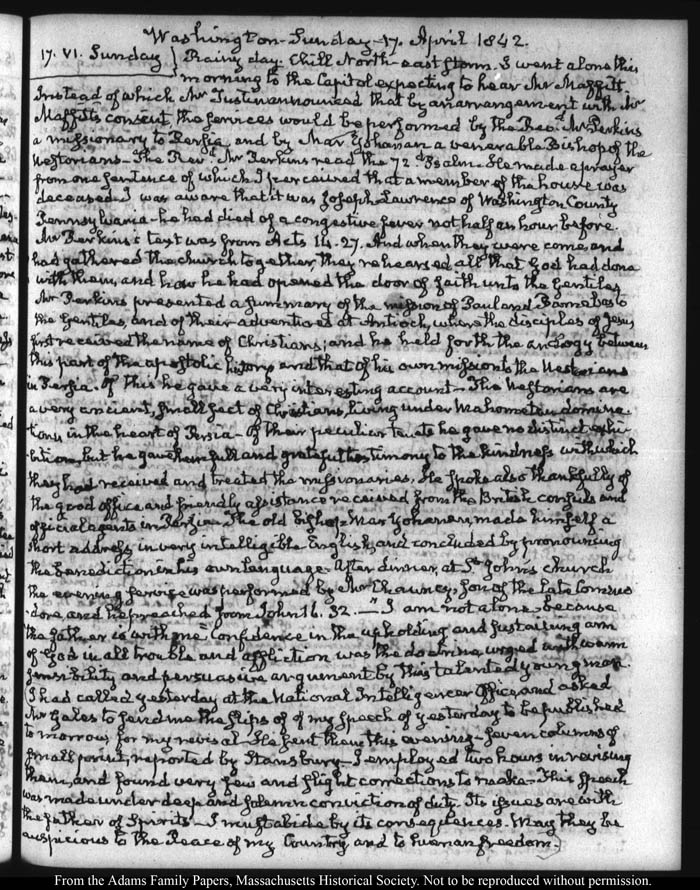 Washington Sunday 17. April 1842.
17. VI. Sunday } Rainy day. Chill North-east storm. I went alone this
morning to the Capitol expecting to hear Mr Maffitt.
Instead of which Mr Tustin announced that by an arrangement with Mr
Maffitt's consent the services would be performed by the Revd. Mr Perkins
a missionary to Persia, and by Mar Yohannan a venerable Bishop of the
Nestorians. The Revd. Mr Perkins read the 72d Psalm. He made a prayer
from one sentence of which I perceived that a member of the house was
deceased. I was aware that it was Joseph Lawrence of Washington County
Pennsylvania. he had died of a congestive fever not half an hour before.
Mr Perkins's text was from Acts 14.27. And when they were come, and
had gathered the church together, they rehearsed all that God had done
with them, and how he had opened the door of faith unto the Gentiles.
Mr Perkins presented a summary of the mission of Paul and Barnabas to
the Gentiles, and of their adventures at Antioch, where the disciples of Jesus
first received the name of Christians; and he held forth the analogy between
this part of the apostolic history and that of his own mission to the Nestorians
in Persia. Of this he gave a very interesting account. The Nestorians are
a very ancient, small sect of Christians, living under Mahometan domina
tion, in the heart of Persia. Of their peculiar tenets he gave no distinct exhi
bition, but he gave full and grateful testimony to the kindness with which
they had received and treated the missionaries. He spoke also thankfully of
the good office and friendly assistance received from the British consuls and
official agents in Persia. The old bishop Mar Yohannan, made himself a
short address in very intelligible English, and concluded by pronouncing
the benediction in his own language. After dinner, at St. John's church
the evening service was performed by Mr Chauncy, son of the late Commo
dore, and he preached from John 16. 32. "I am not alone, because
the father is with me" Confidence in the upholding and sustaining arm
of God in all trouble and affliction was the doctrine urged with warm
sensibility and persuasive argument by this talented young man.
I had called yesterday at the National Intelligencer Office, and asked
Mr Gales to send me the slips of of my speech of yesterday to be published
to morrow, for my revisal. He sent them this evening. Seven columns of
small print, reported by Stansbury. I employed two hours in revising
them, and found very few and slight corrections to make. This speech
was made under deep and solemn conviction of duty. Its issues are with
the father of Spirits. I must abide by its consequences. May they be
auspicious to the Peace of my Country, and to human freedom.
From the Adams Family Papers, Massachusetts Historical Society. Not to be reproduced without permission.